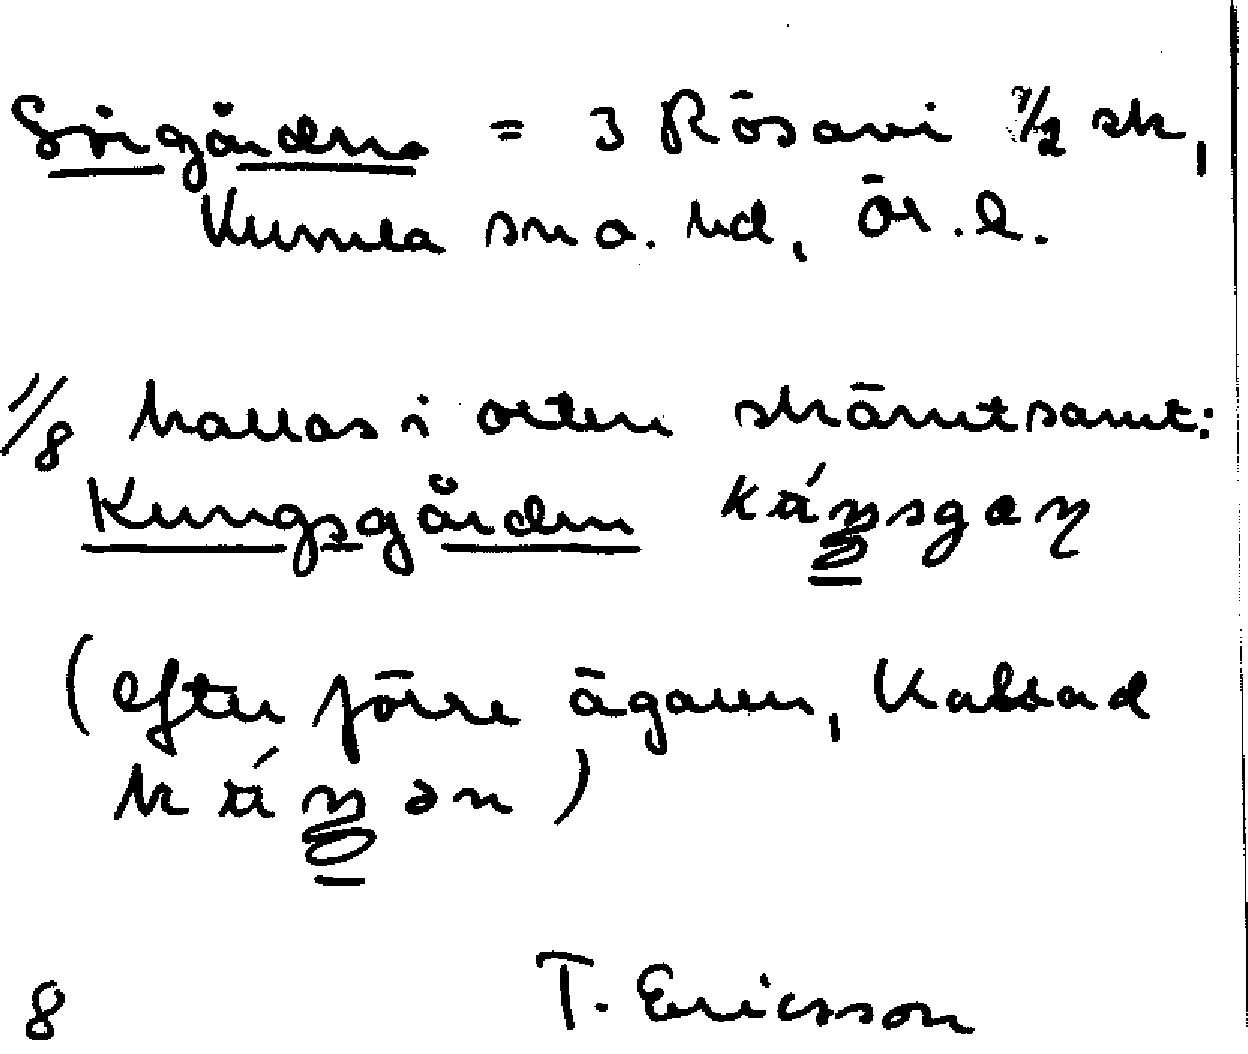 Sörgården = 3 Rösavi 1/2 sk,
Kumla sn o. hd, Ör. l.
1/8 kallas i orten skämtsamt:
Kungsgården
(efter förre ägaren, kallad
)
8 T. Ericsson